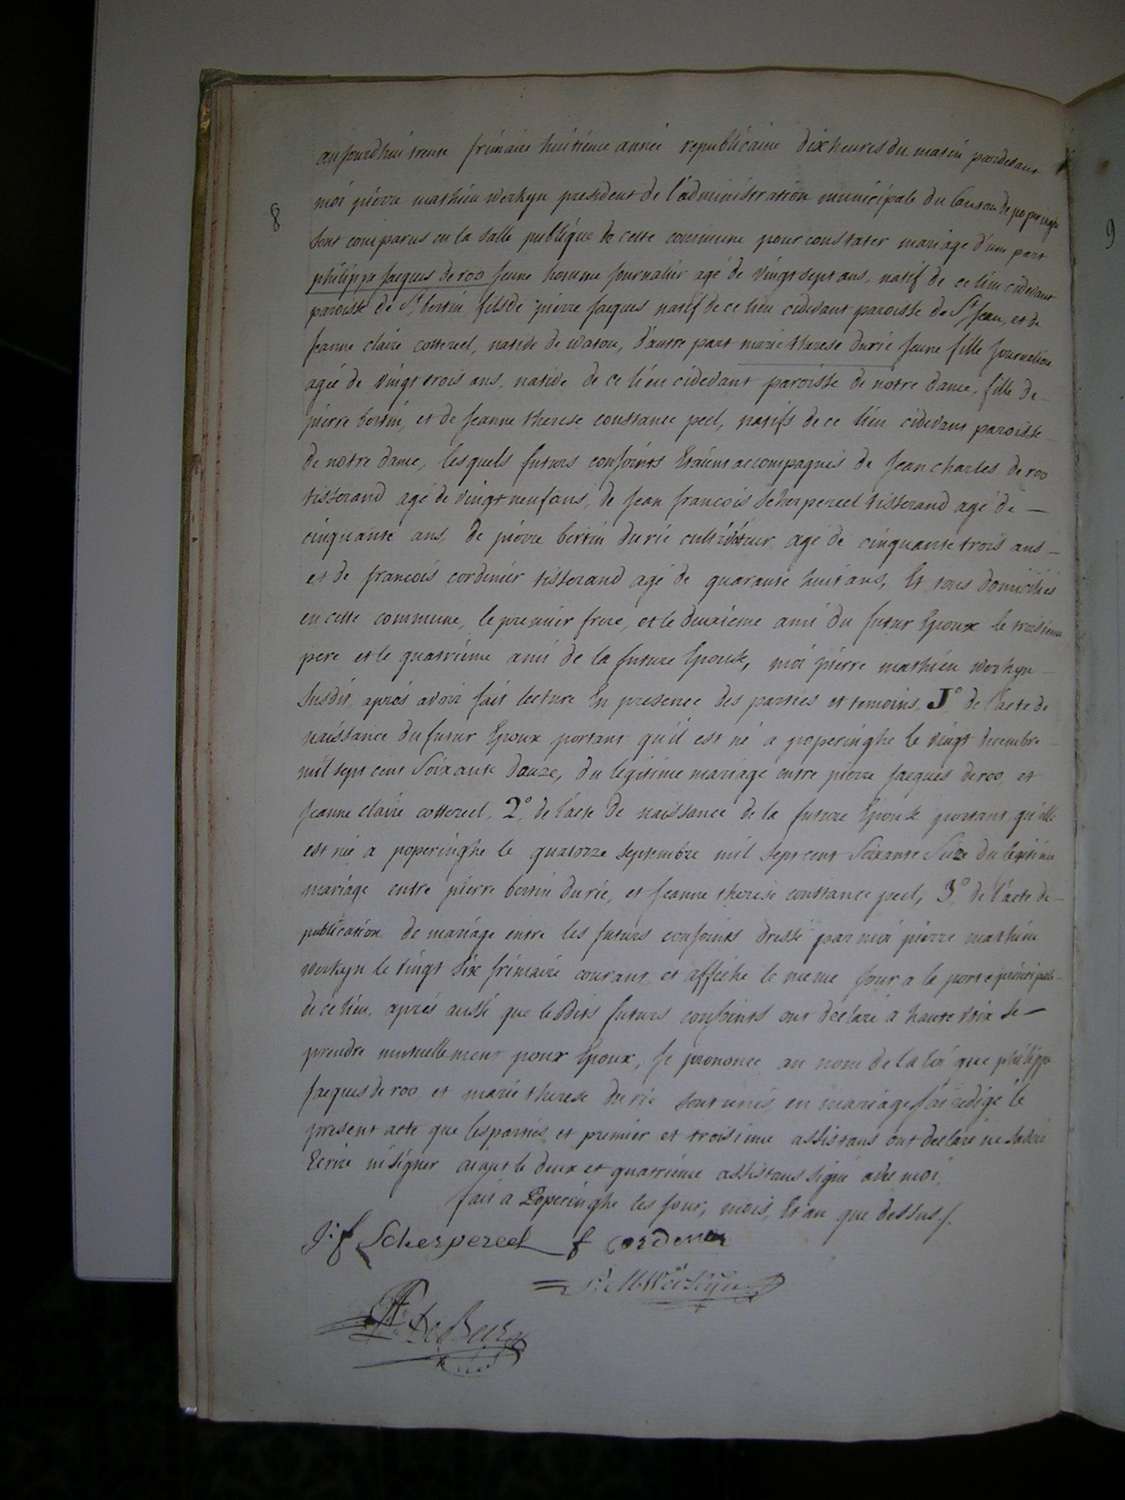 aujourdhui trente frimaire huitieme année republicaine dix heures du matin pardevant
moi pierre mathieu werkyn president de l'administration municipale du Canton de poperinghe
8
9
sont comparus en la salle publique de cette commune pour constater mariage d'une part
philippe jacques de roo jeune homme journalier agé de vingt sept ans, natif de ce lieu cidevant
paroisse de St bertin fils de pierre jacques natif de ce lieu cidevant paroisse de St Jean, et de
jeanne claire cottereel, native de watou, d'autre part marie therese durie jeune fille journaliere
agée de vingt trois ans, native de ce lieu cidevant paroisse de notre dame, fille de
pierre bertin, et de jeanne therese constance peel, natifs de ce lieu cidevant paroisse
de notre dame, lesquels futurs conjoints etaient accompagnés de jean charles de roo
tisserand agé de vingt neuf ans, de jean francois scherpereel tisserand agé de —
cinquante ans, de pierre bertin durie cultivateur agé de cinquante trois ans —
et de francois cordenier tisserand agé de quarante huit ans, Et tous domiciliés
en cette commune, le premier frere, et le deuxieme ami du futur Epoux le troisieme
pere et le quatrieme ami de la future Epouse, moi pierre mathieu werkyn
susdit, aprés avoir fait lecture En presence des parties et temoins, 1° de l'acte de
naissance du futur Epoux portant qu'il est né a poperinghe le vingt decembre
mil sept cent soixante douze, du legitime mariage entre pierre jacques de roo, et
jeanne claire cottereel, 2° de l'acte de naissance de la future Epouse portant qu'elle
est née a poperinghe le quatorze septembre mil sept cent soixante seize du legitime
mariage entre pierre bertin durie, et jeanne therese constance peel, 3° de l'acte de
publication de mariage entre les futurs conjoints dressé par moi pierre mathieu
werkyn le vingt six frimaire courant et affiché le meme jour a la porte principale
de ce lieu, aprés aussi que lesdits futurs conjoints ont declaré a haute voix se —
prendre mutuellement pour Epoux, je prononce au nom de la loi que philippe
jacques de roo et marie therese durie sont unis en mariage j'ai redigé le
present acte que les parties et premier et troisieme assistans ont declaré ne savoir
Ecrire ni signer aiant le deux et quatrieme assistans signé avec moi.
fait a Poperinghe les jour, mois, Et an que dessus /.
J: f Scherpereel f cordenier
P: M: Werkyn
De Beir